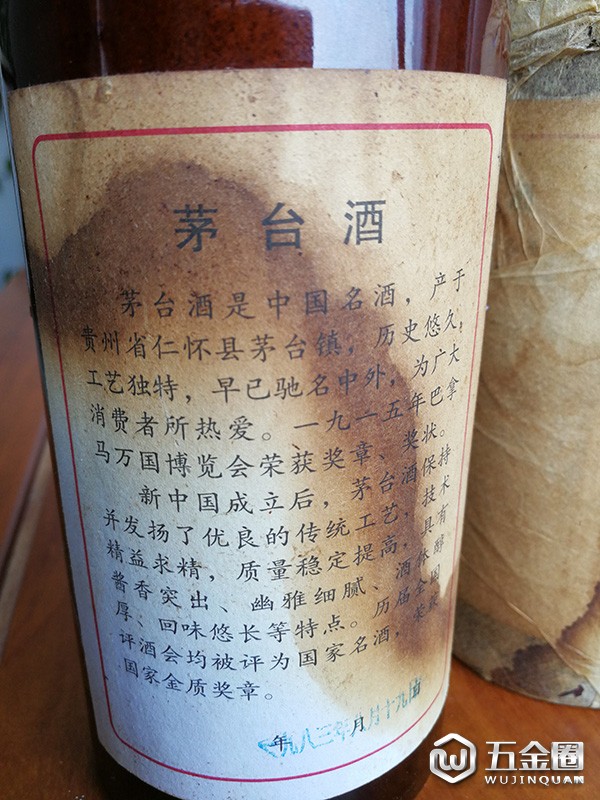 茅台酒
茅台酒是中国名酒，产于
贵州省仁怀县茅台镇，历史悠久，
工艺独特，早已驰名中外，为广大
消费者所热爱。一九一五年巴拿
马万国博览会荣获奖章、奖状。
新中国成立后，茅台酒保持
并发扬了优良的传统工艺，技术
精益求精，质量稳定提高，具有
酱香突出、幽雅细腻、酒体醇
厚、回味悠长等特点。历届全国
评酒会均被评为国家名酒，荣获
国家金质奖章。
一九八三年 月 月十九日
年
五金圈
WUJINQUAN.COM